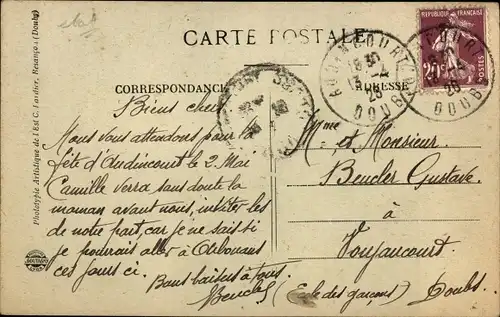 CARTE POSTALE
CORRESPONDANCE
ADRESSE
REPUBLIQUE FRANÇAISE
20c
POSTES
AUDINCOURT
18 30
13 - 4
26
DOUBS
Biens chers
Nous vous attendons pour la
fête d'Audincourt le 2 Mai
Camille verra sans doute la
maman avant nous, invitez les
de notre part, car je ne sais si
je pourrais aller à Arbouans
ces jours ci.
Bons baisers à tous.
Mme et Monsieur
Beucler Gustave
à
Voujaucourt
(Ecole des garçons) Doubs
Phototypie Artistique de l'Est C. Lardier, Besançon (Doubs)